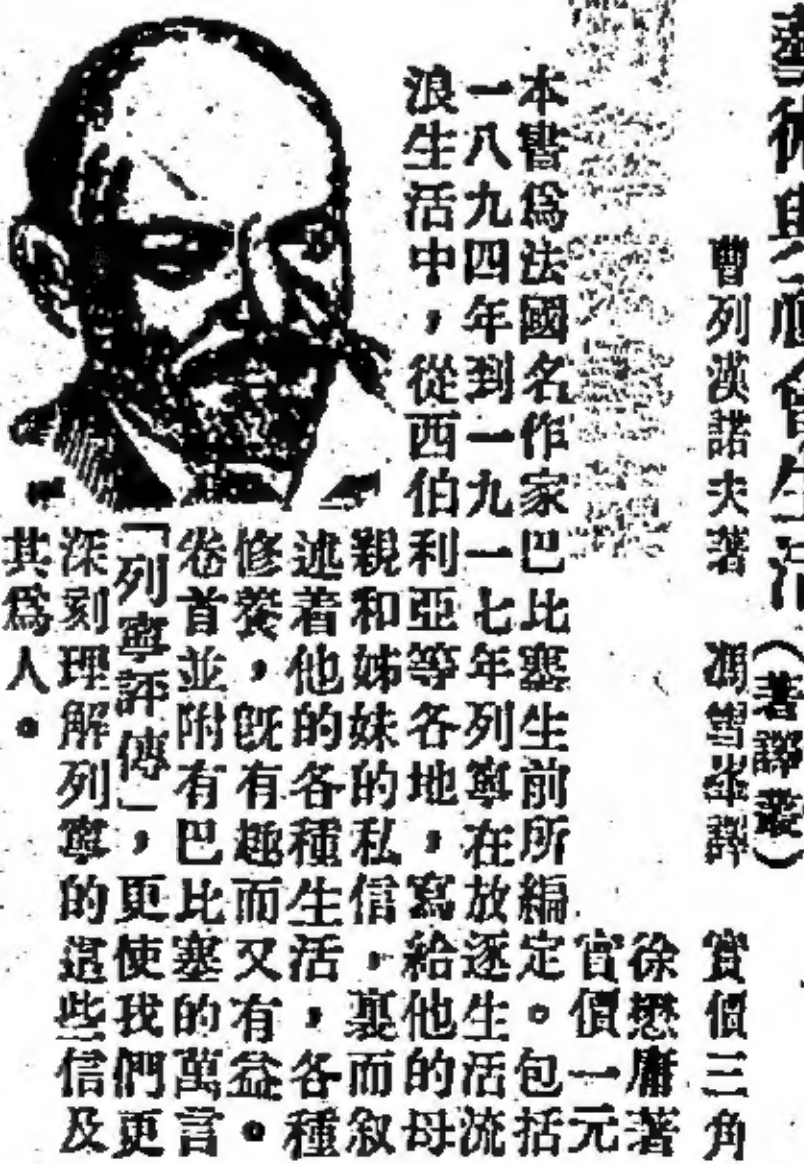 藝術與社會生活（著譯叢）
普列漢諾夫著 馮雪峯譯 實價三角
徐懋庸著
實價一元
本書爲法國名作家巴比塞生前所編定。包括
一八九四年到一九一七年列寧在放逐生活流
浪生活中，從西伯利亞等各地，寫給他的母
親和姊妹的私信，裏而叙
述着他的各種生活，各種
修養，旣有趣而又有益。
卷首並附有巴比塞的萬言
「列寧評傳」，更使我們更
深刻理解列寧的這些信及
其爲人。